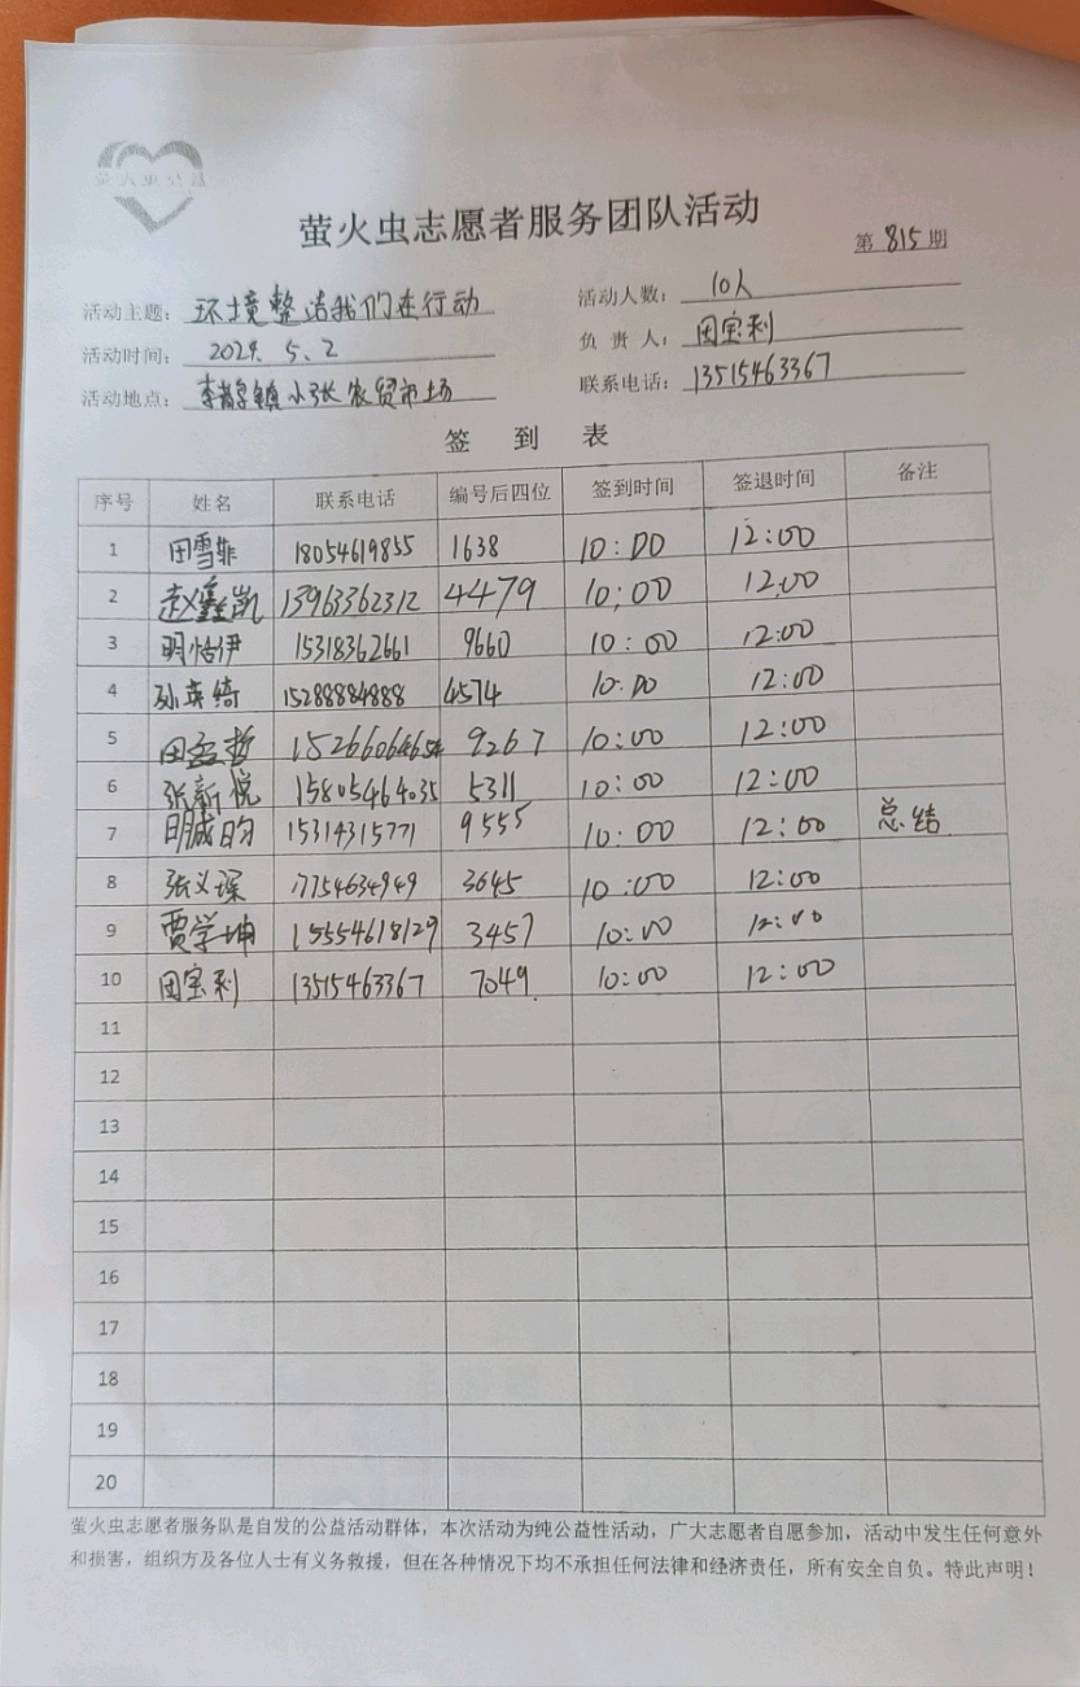 萤火虫公益
萤火虫志愿者服务团队活动
第 815 期
活动主题: 环境整洁我们在行动 活动人数: 10人
活动时间: 2024. 5、2 负 责 人: 田宝利
活动地点: 李鹊镇小张农贸市场 联系电话: 13515463367
签 到 表
序号 姓名 联系电话 编号后四位 签到时间 签退时间 备注
1 田雪菲 18054619855 1638 10:00 12:00
2 赵鑫凯 13963362312 4479 10:00 12:00
3 明恬伊 15318362661 9660 10:00 12:00
4 孙英绮 15288884888 4574 10:00 12:00
5 田孟哲 9267 10:00 12:00
6 张新悦 15805464035 5311 10:00 12:00
7 明诚昀 15314315771 9555 10:00 12:00 总结
8 张义琛 17754634949 3645 10:00 12:00
9 贾学坤 15554618129 3457 10:00 12:00
10 田宝利 13515463367 7049 10:00 12:00
11
12
13
14
15
16
17
18
19
20
萤火虫志愿者服务队是自发的公益活动群体，本次活动为纯公益性活动，广大志愿者自愿参加，活动中发生任何意外
和损害，组织方及各位人士有义务救援，但在各种情况下均不承担任何法律和经济责任，所有安全自负。特此声明！